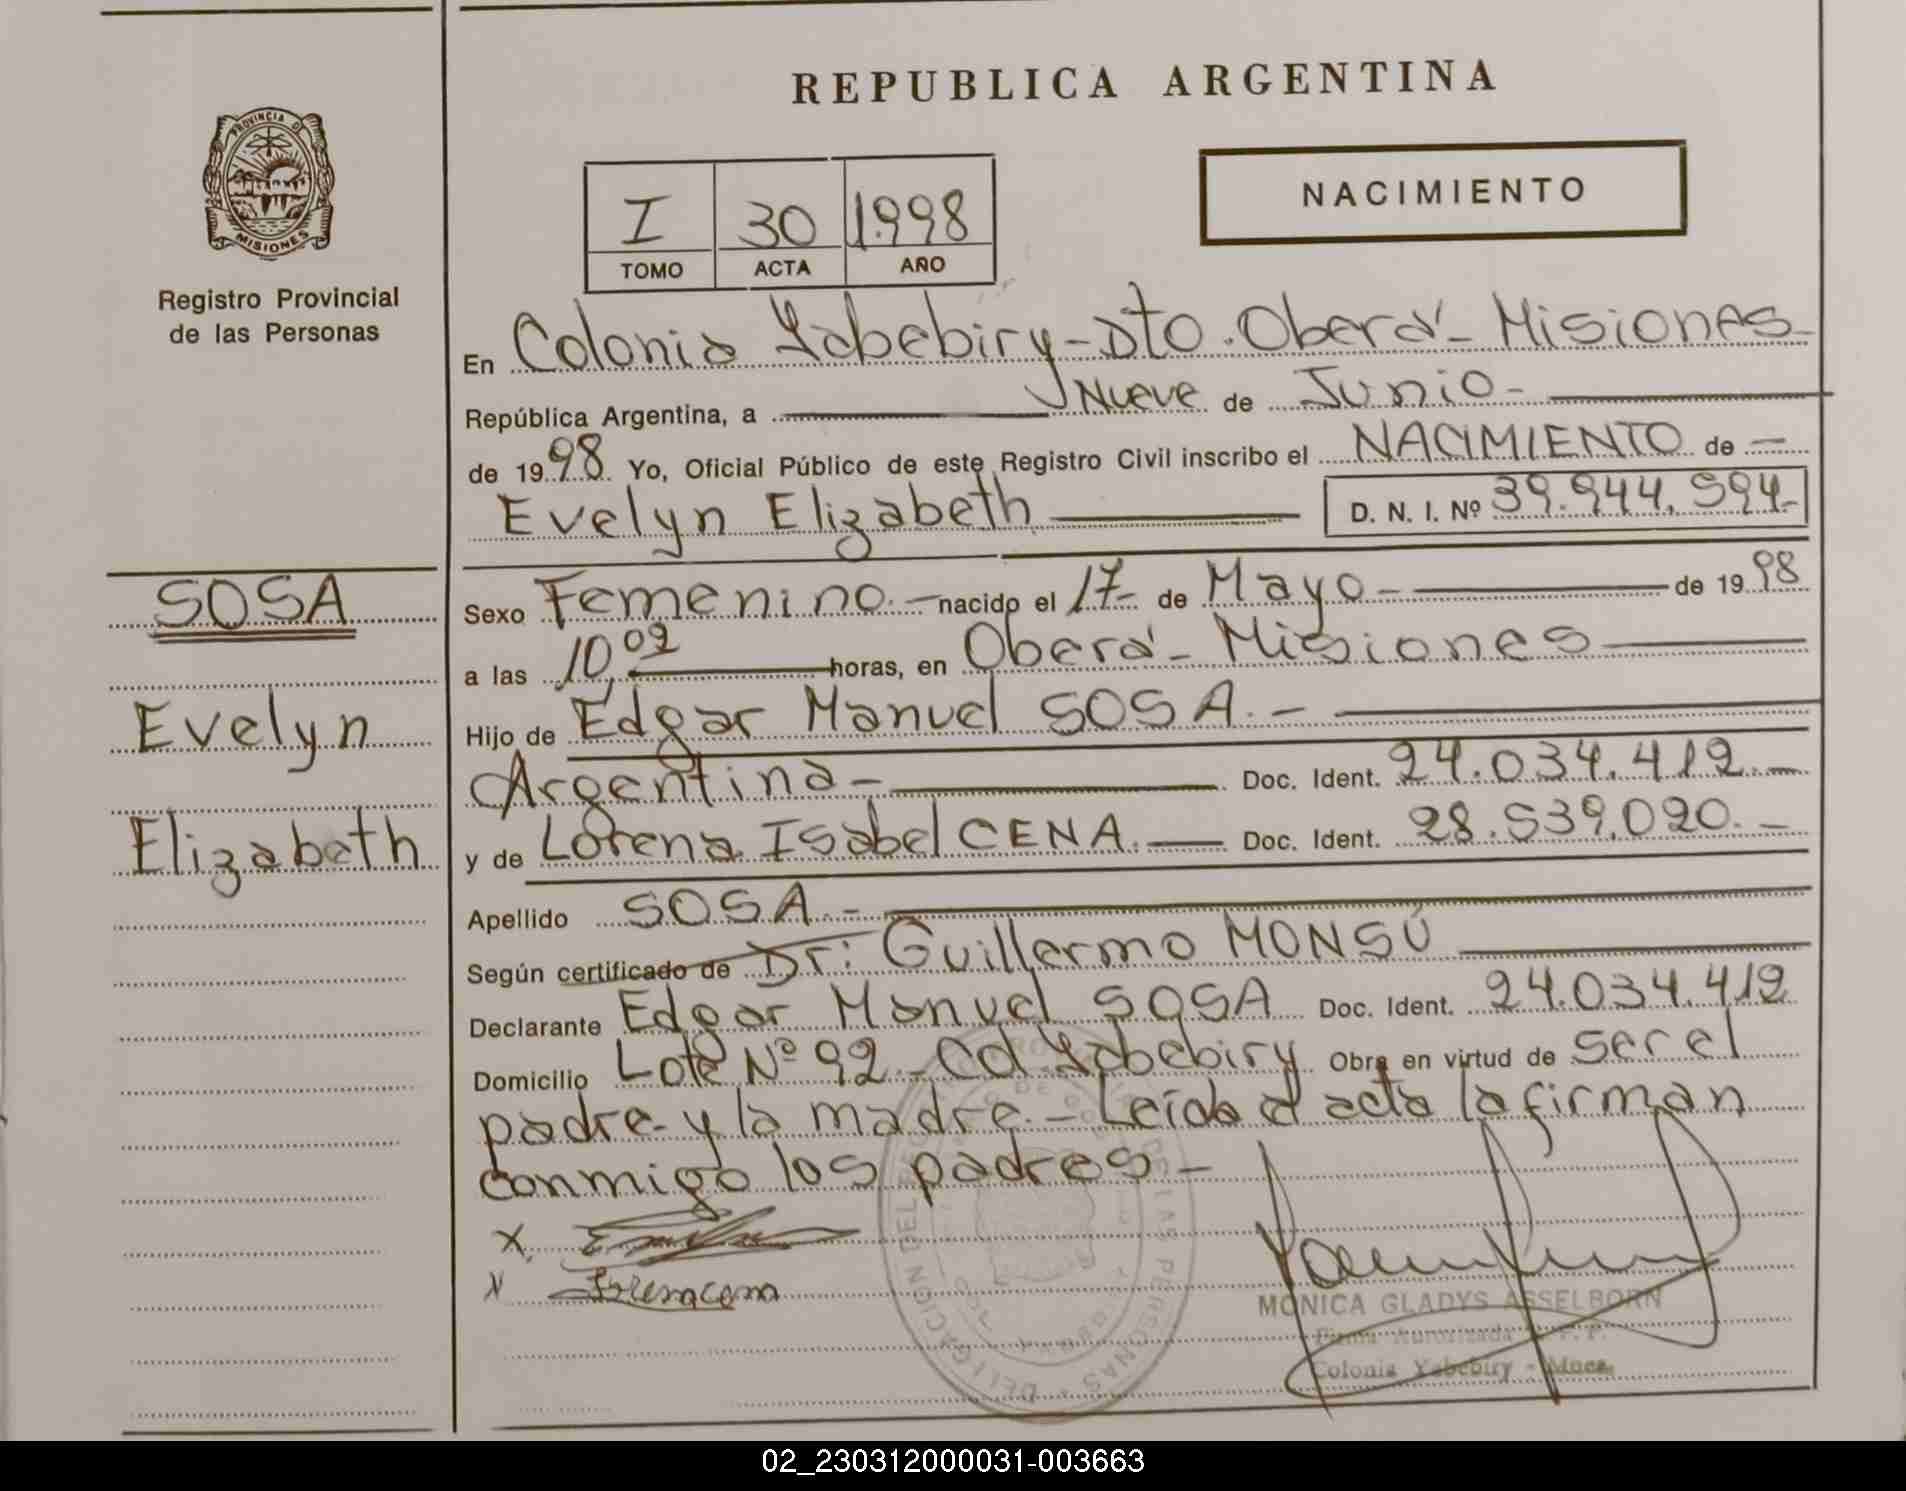 REPUBLICA ARGENTINA
PROVINCIA D
MISIONES
Registro Provincial
de las Personas
I 30 1998
TOMO ACTA AÑO
NACIMIENTO
En Colonia Yabebiry - Dto. Oberá - Misiones -
República Argentina, a Nueve de Junio -
de 1998 Yo, Oficial Público de este Registro Civil inscribo el NACIMIENTO de -
Evelyn Elizabeth D. N. I. Nº 39.944.594.-
SOSA
Evelyn
Elizabeth
Sexo Femenino. - nacido el 17 - de Mayo - de 1998
a las 10,02 horas, en Oberá - Misiones
Hijo de Edgar Manuel SOSA. -
Argentina - Doc. Ident. 24.034.412. -
y de Lorena Isabel CENA. - Doc. Ident. 28.539.020. -
Apellido SOSA. -
Según certificado de Dr: Guillermo MONSÚ
Declarante Edgar Manuel SOSA Doc. Ident. 24.034.412
Domicilio Lote Nº 92 - Col. Yabebiry Obra en virtud de ser el
padre y la madre. - Leída el acta la firman
conmigo los padres -
X
X Lorena cena
MONICA GLADYS ASSELBORN
Firma Autorizada R. P. P.
Colonia Yabebiry - Mnes.
02_230312000031-003663